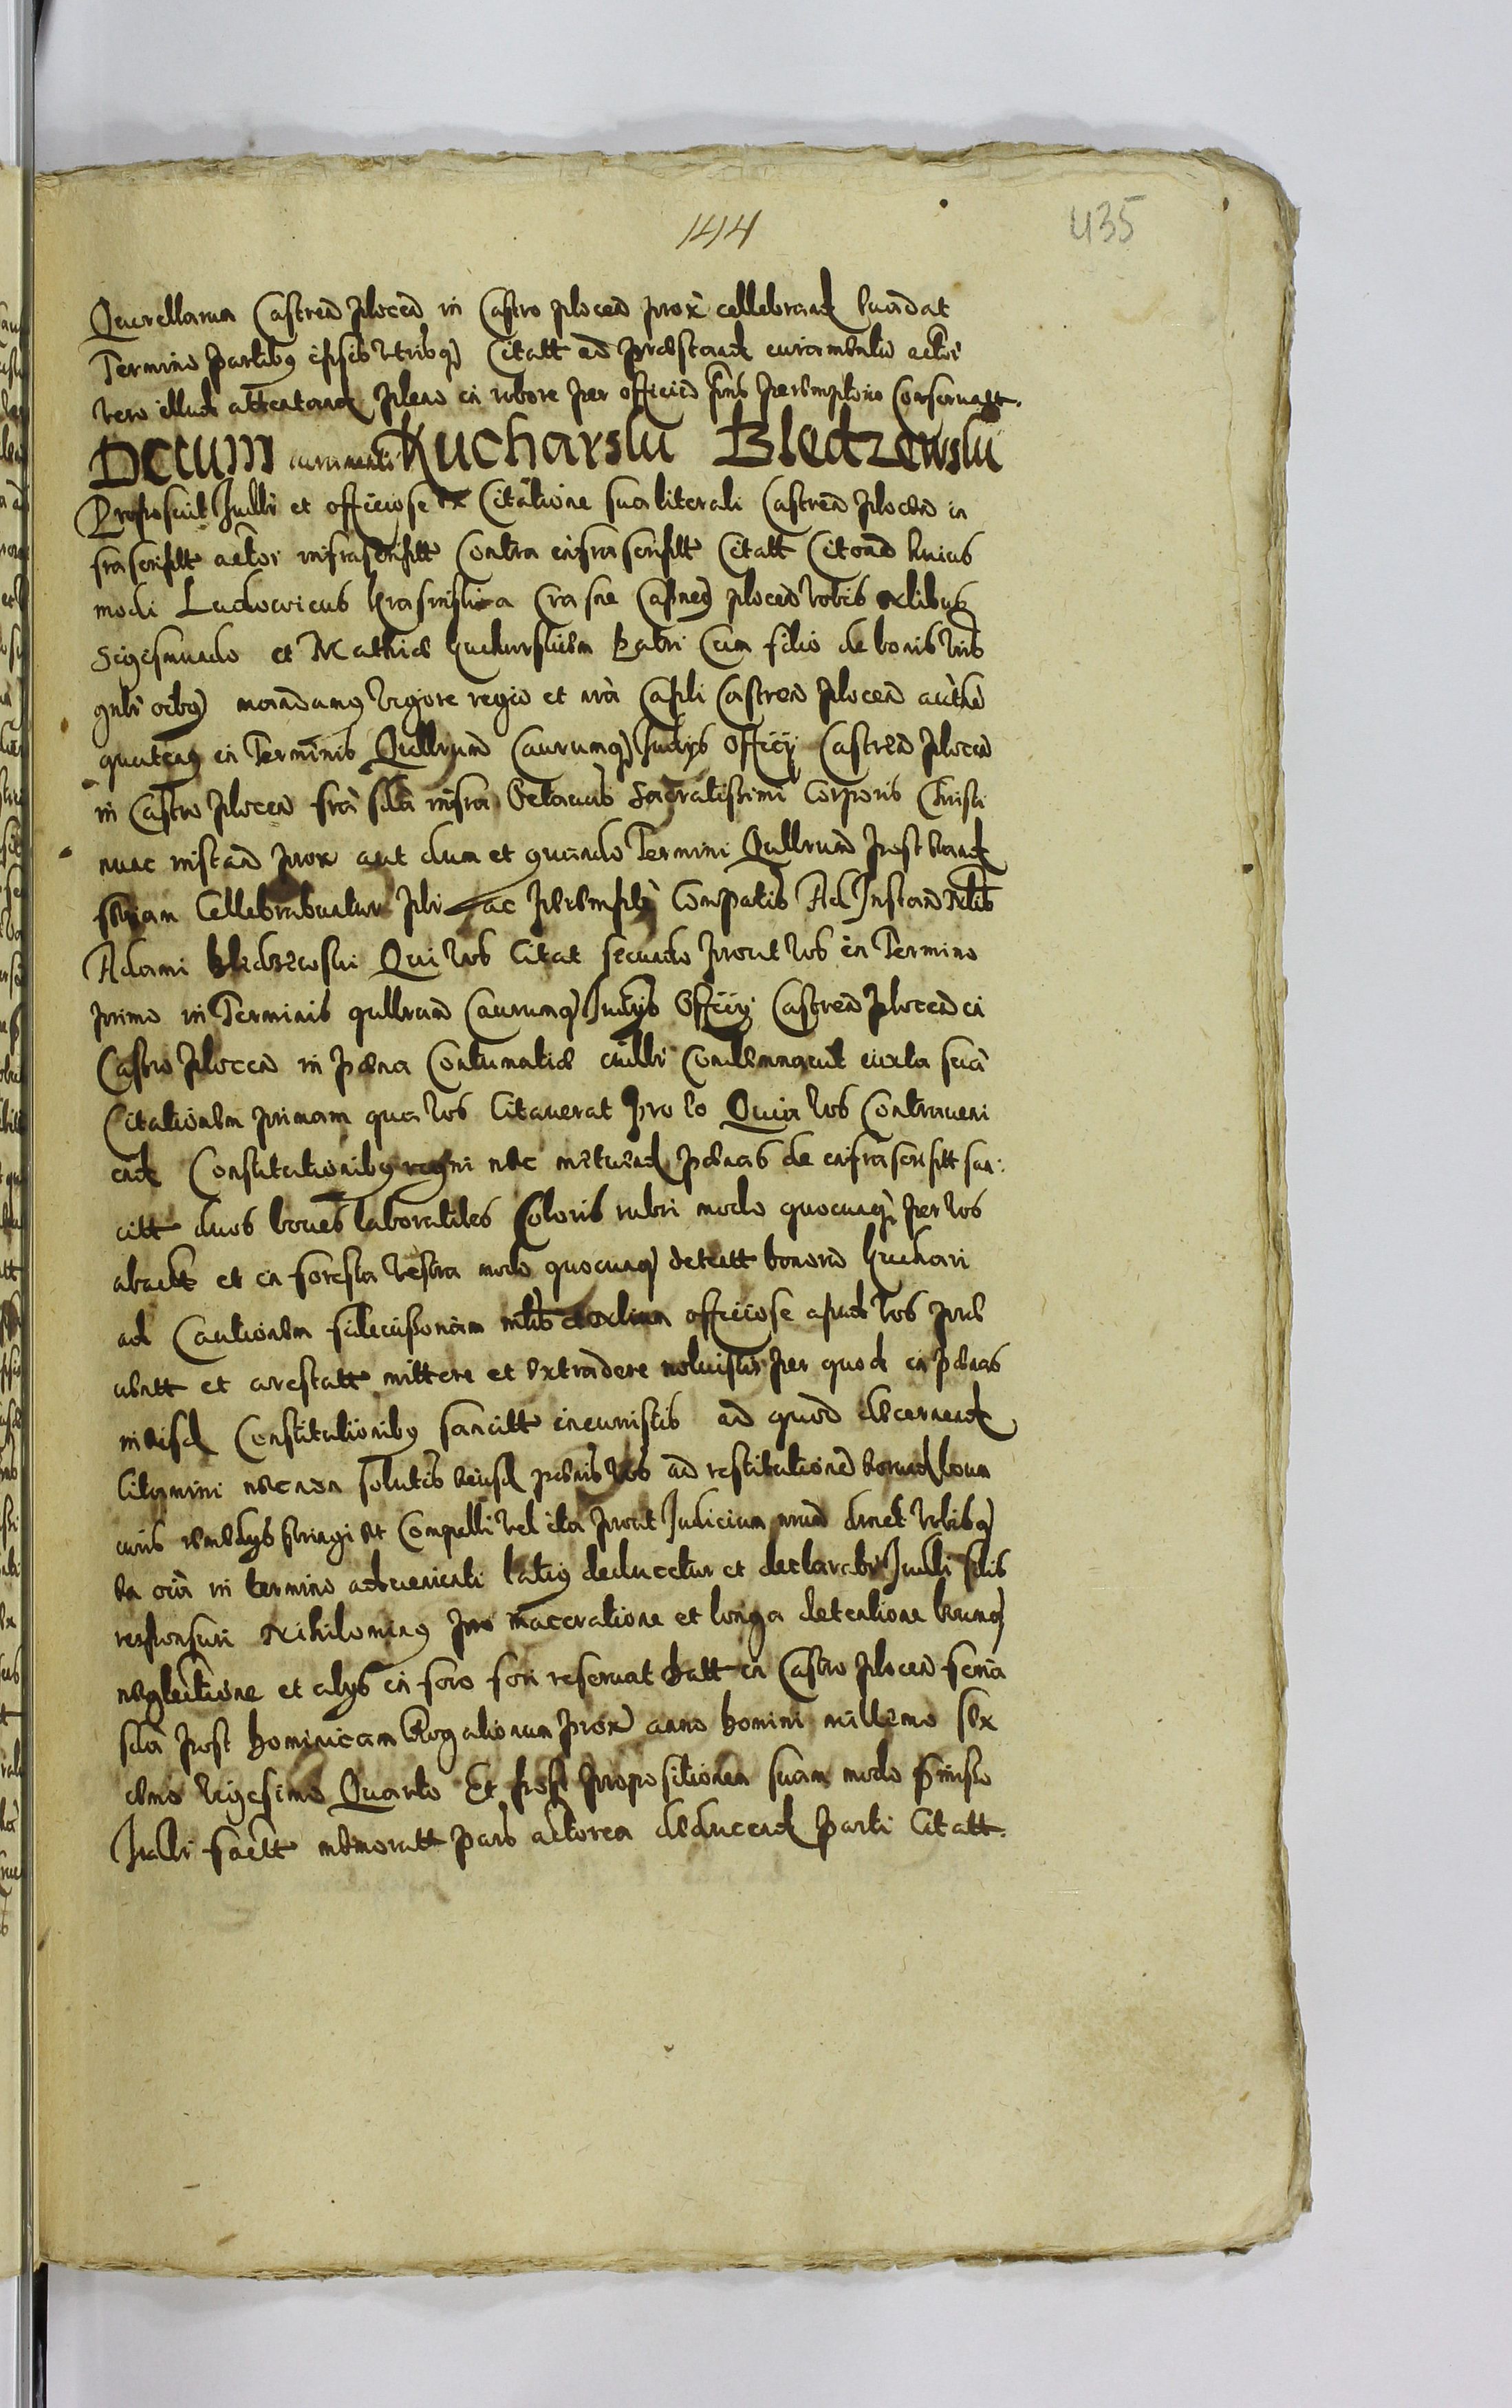 144
435
Querellarum Castren Plocen in Castro Plocen prox cellebrand
Termino partibus ipsis utribq Citatt ad præstand iuramentum actori
vero illud attentand pleno in robore per officium pns peremptorio conseruatt.
Dccum iuramenti Kucharski Bledzewski
Proposuit Judlr et officiose ex Citatione sua literali Castren Plocen in
frascriptt actor infrascriptt Contra infrascriptt Citatt Citoad huius
modi Ludouicus Krasinski a Crasne Castneq Plocen vobis
Sigismundo et Mathiæ Kucharskiem Patri cum filio de bonis vris
gnlr oibq mandamus vigore regio et nra Capli Castren Plocen authe
quatenq in Terminis Qullrum Caurumq Judys Officij Castren Plocen
in Castro Plocen fra scda infra Octauas Sacratissimi Corporis Christi
nunc instan prox aut dum et quando Terminis Qullrum post
Cellebrabuntur plr ac peremptr Compatis Ad Instan Nlis
Adami Bledzewski Qui vos Citat secundo prout vos in Termino
primo in Terminis qullrum Caurumq Judys Officij Castren Plocen in
Castro Plocen in pæna Contumatiæ Condemnauit iuxta suã
Citationem primam qua vos Citauerat pro eo Quia vos Contraueni
end Constitutionibus regni nec metuend pænas de infrascriptt san:
citt duos boues laborabiles Coloris rubri modo quocunq per vos
abactt et in foresta vestra modo quocunq detentt bonorum Kuchari
ad Cautionem fideiussoriam officiose apud vos
et arestatt mittere et extradere noluistis per quod in pænas
in eisd Constitutionibus sancitt incurristis ad quod decernend
Citamini nec non solutis eiusd pænis vos ad restitutionem boum
iuris remedys stringi et Compelli vel ita prout Judicium
ea oia in termino aduenienti latiq deducetur et declarabr Judlr
responsuri Nihilominq pro maceratione et longa detentione
neglectione et alys in foro fori reseruat Datt in Castro Plocen feria
scda post Dominicam Rogationum prox anno Domini millemo sex
cemo vigesimo Quarto Et post propositionem suam modo pmisso
Judlr factt memoratt pars actorea deducend parti Citatt.